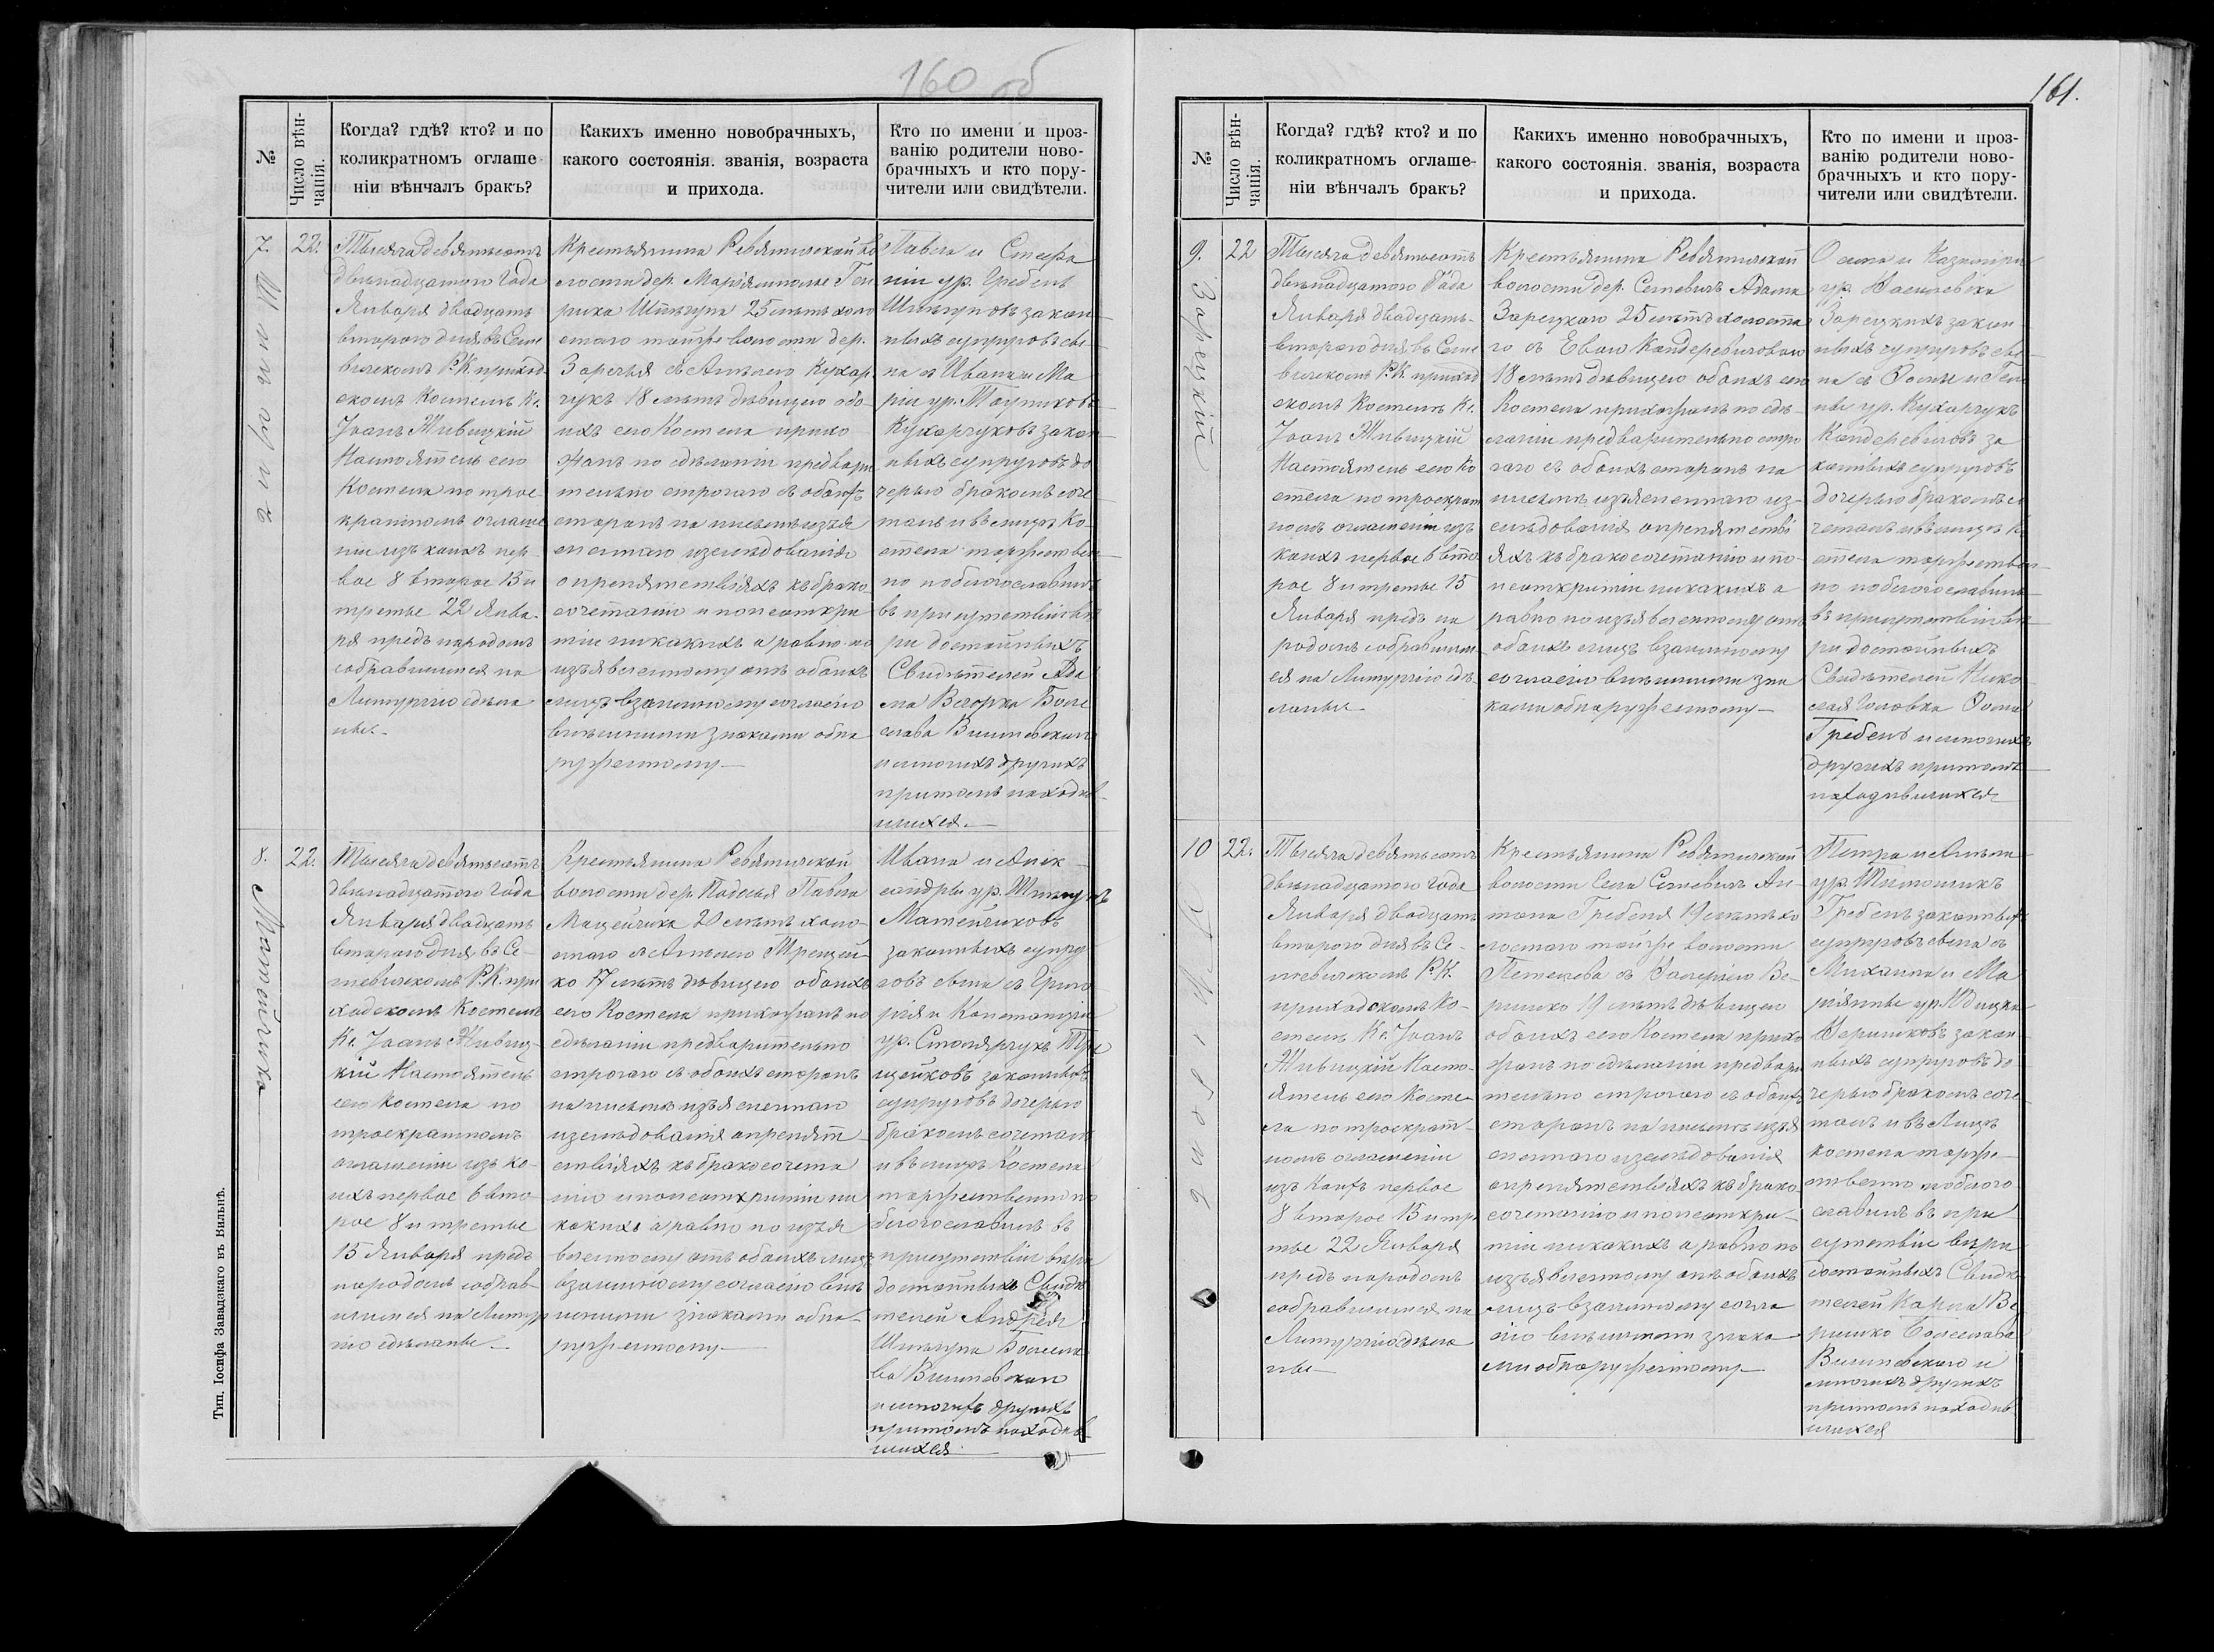 160 об
№
Число вѣн-
чанія.
Когда? гдѣ? кто? и по
коликратномъ оглаше
ніи вѣнчалъ бракъ?
Какихъ именно новобрачныхъ,
какого состоянія. званія, возраста
и прихода.
Кто по имени и проз-
ванію родители ново-
брачныхъ и кто пору-
чители или свидѣтели.
7.
22.
Тысяча девятьсотъ
двѣнадцатого Года
Января двадцать
второго дня въ Сехне
вичскомъ Р.К. приход
скомъ Костелѣ Кс.
Іоанъ Живицкій
Настоятель сего
Костела по трое
кратномъ оглаше
ніи изъ коихъ пер-
вое 8 второе 15 и
третье 22 Янва-
ря предъ народомъ
собравшимся на
Литургію сдѣла
ны.-
Крестьянина Ревятичской во
лости дер. Маріямполе Ген
риха Шпигуна 25 лѣтъ холо
стого той же волости дер.
Заречья съ Анелею Кухар
чукъ 18 лѣтъ дѣвицею обо-
ихъ сего Костела прихо
жанъ по сдѣланіи предвари
тельно строгаго съ обоихъ
сторонъ на письмѣ изъя
сненнаго изслѣдованія
о препятствіяхъ къ брако
сочетанію и по неоткры
тіи никакихъ а равно по
изъявленному отъ обоихъ
лицъ взаимному согласію
внѣшними знаками обна
руженному—
Павла и Стефа
ніи ур. Гребень
Шпигуновъ закон
ныхъ супруговъ сы
на съ Ивана и Ма
ріи ур.
Кухарчуковъ закон
ныхъ супруговъ до
черью бракомъ соче
талъ и въ лицѣ Ко
стела торжествен
но поблагословилъ
въ присутствіи вѣ
ри достойныхъ
Свидѣтелей Ада
ма Болес
лава Вишневскаго
и многихъ другихъ
притомъ находив-
шихся.—
8.
22.
Матейчикъ
Тысяча девятьсотъ
двѣнадцатого Года
Января двадцать
второго дня въ Се-
хневичскомъ Р.К. при
ходскомъ Костелѣ
Кс. Іоанъ Живиц-
кій Настоятель
сего Костела по
троекратномъ
оглашеніи изъ ко-
ихъ первое 6 вто-
рое 8 и третье
15 Января предъ
народомъ собрав-
шимся на Литур
гію сдѣланы.-
Крестьянина Ревятичской
волости дер. Подосья Павла
Мацейчика 20 лѣтъ холо-
стого съ Анелею Трещей-
ко 17 лѣтъ дѣвицею обоихъ
сего Костела прихожанъ по
сдѣланіи предварительно
строгаго съ обоихъ сторонъ
на письмѣ изъясненнаго
изслѣдованія о препят
ствіяхъ къ бракосочета
нію и по неоткрытіи ни
какихъ а равно по изъя
вленному отъ обоихъ лицъ
взаимному согласію внѣ
шними знаками обна-
руженному—
Ивана и Алек-
сандры ур.
Матейчиковъ
законныхъ супру
говъ сына съ Григо
рія и Константіи
ур. Столярчукъ Тре
щейковъ законныхъ
супруговъ дочерью
бракомъ сочеталъ
и въ лицѣ Костела
торжественно по
благословилъ въ
присутствіи вѣри
достойныхъ Свидѣ
телей Андрея
Шпигуна Болесла
ва Вишневскаго
и многихъ другихъ
притомъ находив-
шихся
Тип. Іосифа Завадзкаго въ Вильнѣ.
161.
№
Число вѣн-
чанія.
Когда? гдѣ? кто? и по
коликратномъ оглаше-
ніи вѣнчалъ бракъ?
Какихъ именно новобрачныхъ,
какого состоянія. званія, возраста
и прихода.
Кто по имени и проз-
ванію родители ново-
брачныхъ и кто пору-
чители или свидѣтели.
9.
22
Зарецкій
Тысяча девятьсотъ
двѣнадцатого Года
Января двадцать-
второго дня въ Сехне
вичскомъ Р.К. приход
скомъ Костелѣ Кс.
Іоанъ Живицкій
Настоятель сего Ко
стела по троекрат
номъ оглашеніи изъ
коихъ первое 6 вто
рое 8 и третье 15
Января предъ на
родомъ собравшим
ся на Литургію сдѣ-
ланы.-
Крестьянина Ревятичской
волости дер. Сехневичъ Адама
Зарецкаго 25 лѣтъ холоста
го съ Евою Кандеревичовою
18 лѣтъ дѣвицею обоихъ сего
Костела прихожанъ по сдѣ-
ланіи предварительно стро
гаго съ обоихъ сторонъ на
письмѣ изъясненнаго из-
слѣдованія о препятстві
яхъ къ бракосочетанію и по-
неоткрытіи никакихъ а
равно по изъявленному отъ
обоихъ лицъ взаимному
согласію внѣшними зна
ками обнаруженному—
Осипа и Казимиры
ур. Василевска
Зарецкихъ закон
ныхъ супруговъ сы
на съ Фомы и Геле
ны ур. Кухарчукъ
Кандеревичовъ за
конныхъ супруговъ
дочерью бракомъ со
четалъ и въ лицѣ Ко
стела торжествен
но поблагословилъ
въ присутствіи вѣ
ри достойныхъ
Свидѣтелей Нико
лая Головка Фомы
Гребень и многихъ
другихъ притомъ
находившихся
10
22.
Гребень
Тысяча девятьсотъ
двѣнадцатого Года
Января двадцать
второго дня въ Се-
хневичскомъ Р.К.
приходскомъ Ко-
стелѣ Кс. Іоанъ
Живицкій Насто-
ятель сего Косте-
ла по троекрат-
номъ оглашеніи
изъ коихъ первое
8 второе 15 и тре
тье 22 Января
предъ народомъ
собравшимся на
Литургію сдѣла
ны—
Крестьянина Ревятичской
волости Села Сехневичъ Ан-
тона Гребеня 19 лѣтъ хо
лостого той же волости
съ Валеріею Ве-
ришко 19 лѣтъ дѣвицею
обоихъ сего Костела прихо
жанъ по сдѣланіи предвари
тельно строгаго съ обоихъ
сторонъ на письмѣ изъя
сненнаго изслѣдованія
о препятствіяхъ къ брако-
сочетанію и по неоткры-
тіи никакихъ а равно по
изъявленному отъ обоихъ
лицъ взаимному согла
сію внѣшними знака
ми обнаруженному—
Петра и
ур.
Гребень законныхъ
супруговъ сына съ
Михаила и Ма
ріянны ур.
Веришковъ закон-
ныхъ супруговъ до
черью бракомъ соче
талъ и въ Лицѣ
Костела торже-
ственно поблаго-
славилъ въ при
сутствіи вѣри
достойныхъ Свидѣ
телей Карла Ве
ришко Болеслава
Вишневскаго и
многихъ другихъ
притомъ находив
шихся